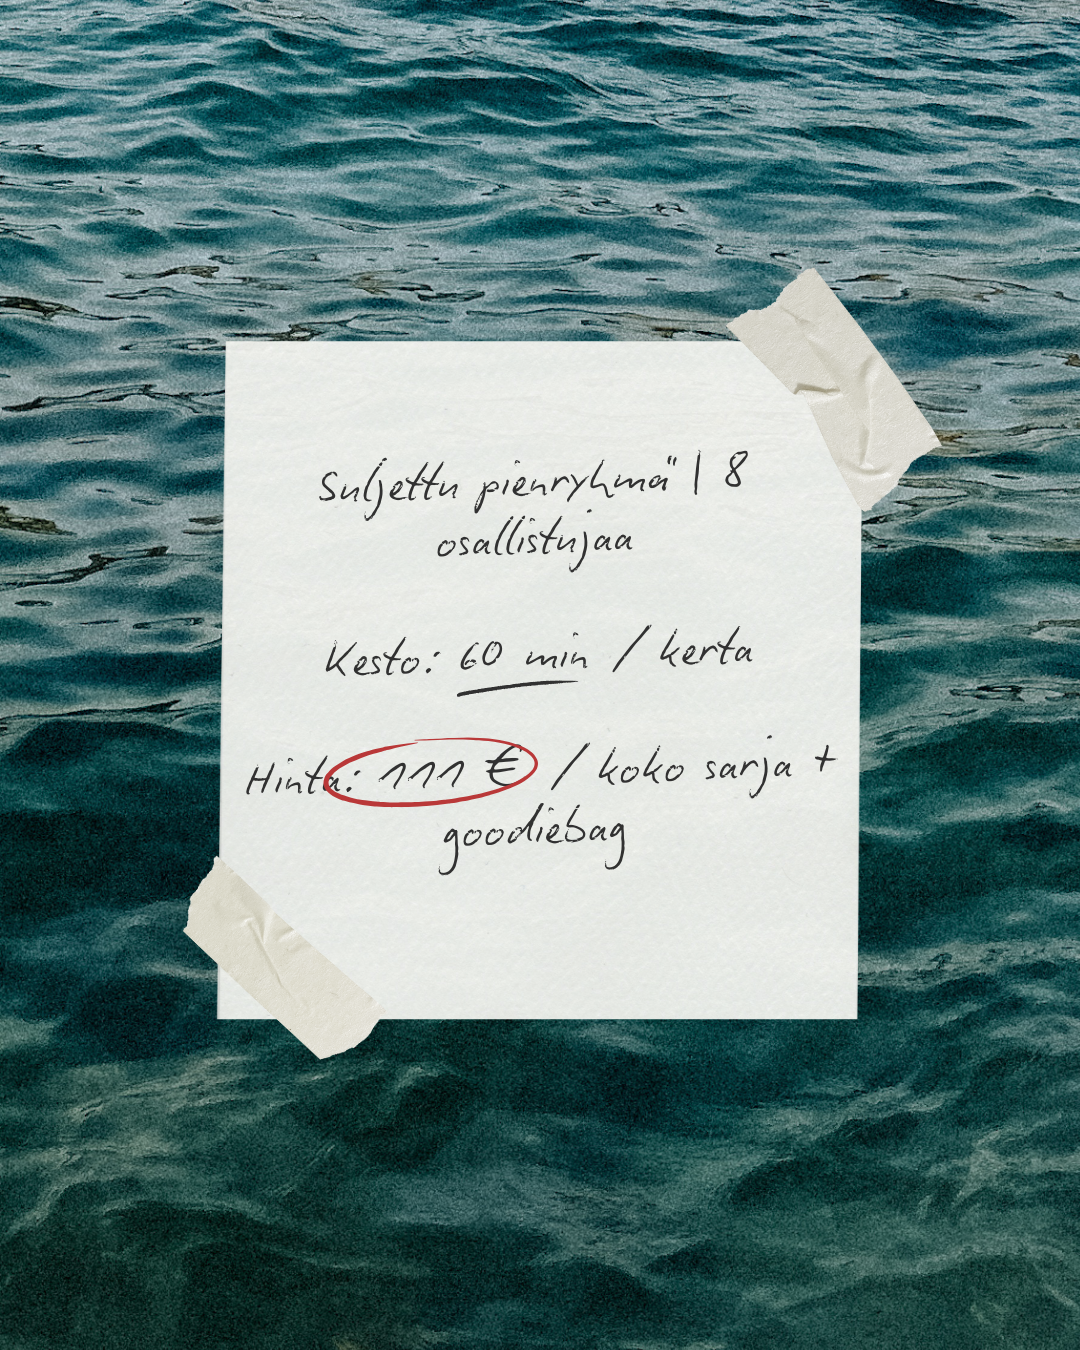 Suljettu pienryhmä | 8
osallistujaa
Kesto: 60 min / kerta
Hinta: 111 € / koko sarja +
goodiebag